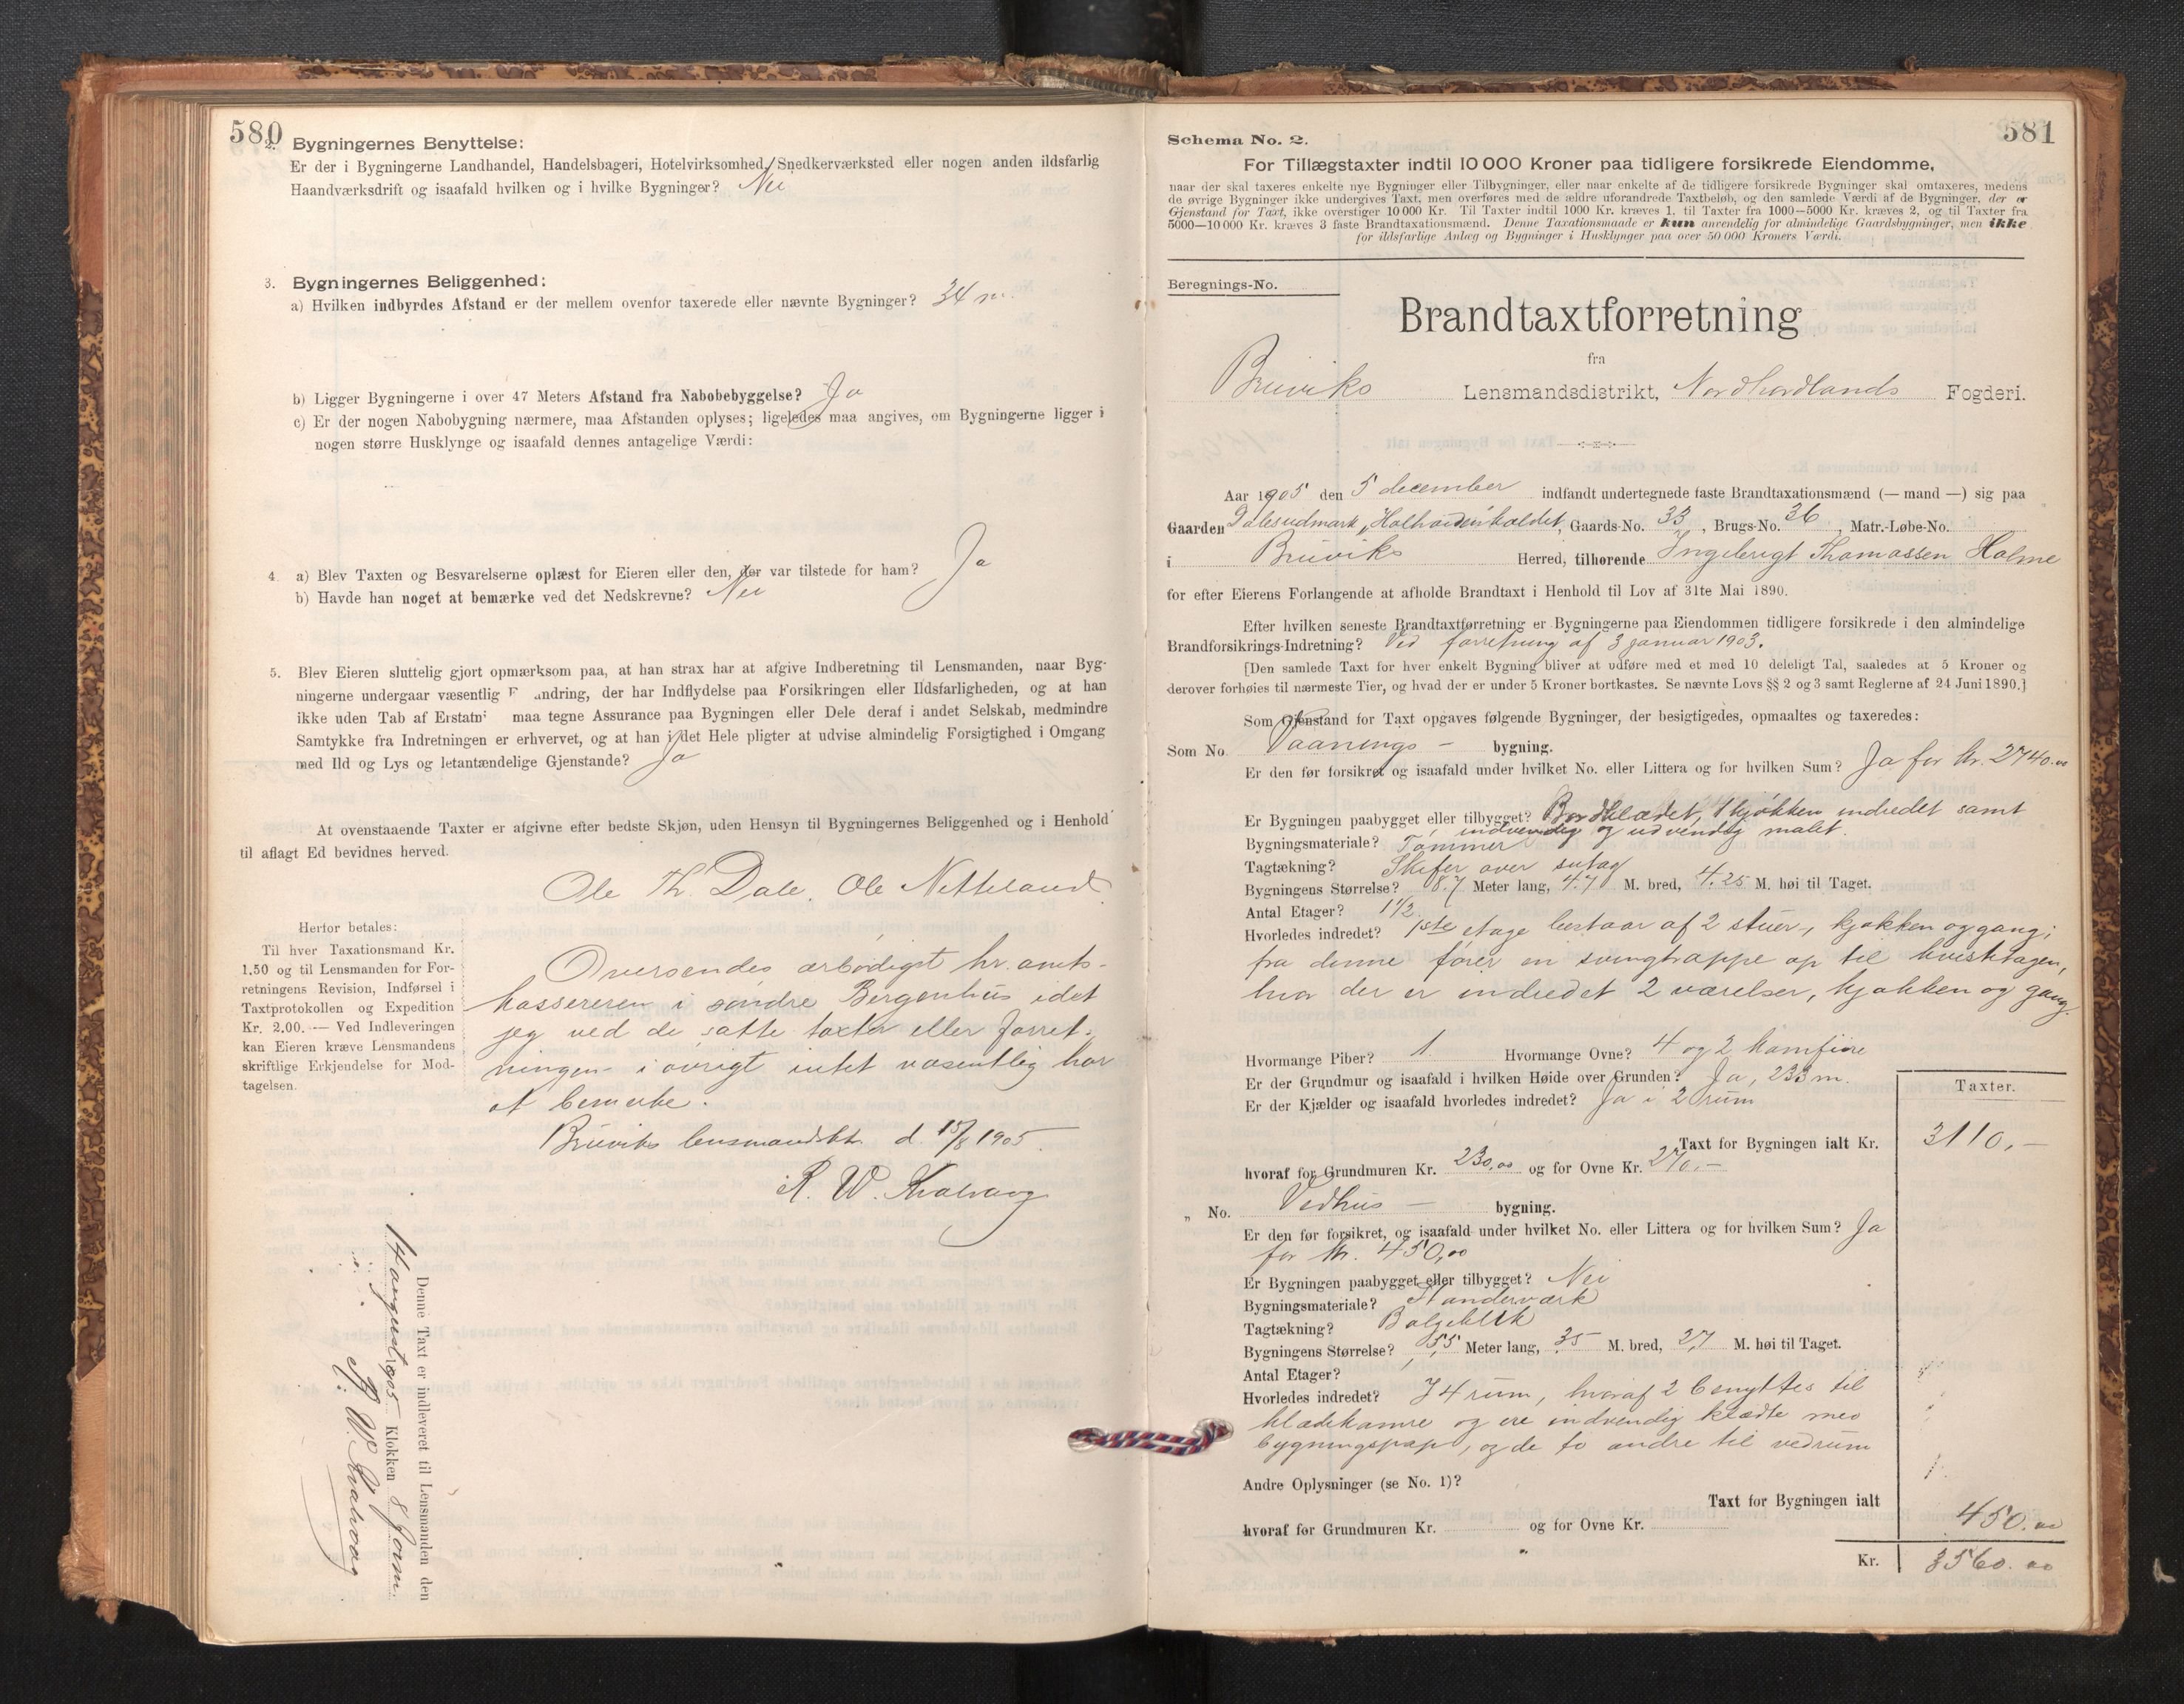 580
2. Bygningernes Benyttelse:
Er der i Bygningerne Landhandel, Handelsbageri, Hotelvirksomhed, Snedkerværksted eller nogen anden ildsfarlig
Haandværksdrift og isaafald hvilken og i hvilke Bygninger? Nei
3. Bygningernes Beliggenhed:
a) Hvilken indbyrdes Afstand er der mellem ovenfor taxerede eller nævnte Bygninger? 34 m.
b) Ligger Bygningerne i over 47 Meters Afstand fra Nabobebyggelse? Ja
c) Er der nogen Nabobygning nærmere, maa Afstanden oplyses; ligeledes maa angives, om Bygningerne ligger i
nogen større Husklynge og isaafald dennes antagelige Værdi:
4. a) Blev Taxten og Besvarelserne oplæst for Eieren eller den, der var tilstede for ham? Ja
b) Havde han noget at bemærke ved det Nedskrevne? Nei
5. Blev Eieren sluttelig gjort opmærksom paa, at han strax har at afgive Indberetning til Lensmanden, naar Byg-
ningerne undergaar væsentlig F andring, der har Indflydelse paa Forsikringen eller Ildsfarligheden, og at han
ikke uden Tab af Erstatn maa tegne Assurance paa Bygningen eller Dele deraf i andet Selskab, medmindre
Samtykke fra Indretningen er erhvervet, og at han i det Hele pligter at udvise almindelig Forsigtighed i Omgang
med Ild og Lys og letantændelige Gjenstande? Ja
At ovenstaaende Taxter er afgivne efter bedste Skjøn, uden Hensyn til Bygningernes Beliggenhed og i Henhold
til aflagt Ed bevidnes herved.
Ole Th. Dale. Ole Netteland
Herfor betales:
Til hver Taxationsmand Kr.
1,50 og til Lensmanden for For-
retningens Revision, Indførsel i
Taxtprotokollen og Expedition
Kr. 2.00. — Ved Indleveringen
kan Eieren kræve Lensmandens
skriftlige Erkjendelse for Mod-
tagelsen.
Oversendes ærbødigst hr. amts-
kassereren i søndre Bergenhus idet
jeg ved de satte taxter eller forret-
ningen i øvrigt intet væsentlig har
at bemerke.
Bruviks lensmandskt. d. 15/8 1905
R. W.
Denne Taxt er indleveret til Lensmanden den
14 august 1905 Klokken 8 form.
R. W.
581
Schema No. 2.
For Tillægstaxter indtil 10 000 Kroner paa tidligere forsikrede Eiendomme,
naar der skal taxeres enkelte nye Bygninger eller Tilbygninger, eller naar enkelte af de tidligere forsikrede Bygninger skal omtaxeres, medens
de øvrige Bygninger ikke undergives Taxt, men overføres med de ældre uforandrede Taxtbeløb, og den samlede Værdi af de Bygninger, der er
Gjenstand for Taxt, ikke overstiger 10 000 Kr. Til Taxter indtil 1000 Kr. kræves 1, til Taxter fra 1000—5000 Kr. kræves 2, og til Taxter fra
5000—10 000 Kr. kræves 3 faste Brandtaxationsmænd. Denne Taxationsmaade er kun anvendelig for almindelige Gaardsbygninger, men ikke
for ildsfarlige Anlæg og Bygninger i Husklynger paa over 50 000 Kroners Værdi.
Beregnings-No.
Brandtaxtforretning
fra
Bruviks Lensmandsdistrikt, Nordhordlands Fogderi.
Aar 1905 den 5 december indfandt undertegnede faste Brandtaxationsmænd (— mand —) sig paa
Gaarden Dalesudmark, Gaards-No. 33, Brugs-No. 36, Matr.-Løbe-No.
i Bruviks Herred, tilhørende Ingebrigt Thomassen Holme
for efter Eierens Forlangende at afholde Brandtaxt i Henhold til Lov af 31te Mai 1890.
Efter hvilken seneste Brandtaxtforretning er Bygningerne paa Eiendommen tidligere forsikrede i den almindelige
Brandforsikrings-Indretning? Ved forretning af 3 januar 1903.
[Den samlede Taxt for hver enkelt Bygning bliver at udføre med et med 10 deleligt Tal, saaledes at 5 Kroner og
derover forhøies til nærmeste Tier, og hvad der er under 5 Kroner bortkastes. Se nævnte Lovs §§ 2 og 3 samt Reglerne af 24 Juni 1890.]
Som Gjenstand for Taxt opgaves følgende Bygninger, der besigtigedes, opmaaltes og taxeredes:
Som No. Vaanings- bygning.
Er den før forsikret og isaafald under hvilket No. eller Littera og for hvilken Sum? Ja for kr. 2740.00
Er Bygningen paabygget eller tilbygget? Bordklædet, 1 kjøkken indredet samt
indvendig og udvendig malet.
Bygningsmateriale? Tømmer
Tagtækning? Skifer over sutag
Bygningens Størrelse? 8.7 Meter lang, 4.7 M. bred, 4.25 M. høi til Taget.
Antal Etager? 1 1/2
Hvorledes indredet? 1ste etage bestaar af 2 stuer, kjøkken og gang;
fra denne fører en svingtrappe op til kvistetagen,
hvor der er indredet 2 værelser, kjøkken og gang.
Hvormange Piber? 1 Hvormange Ovne? 4 og 2 komfure
Er der Grundmur og isaafald i hvilken Høide over Grunden? Ja, 2.33 m.
Er der Kjælder og isaafald hvorledes indredet? Ja i 2 rum
Taxter.
Taxt for Bygningen ialt Kr. 3110,-
hvoraf for Grundmuren Kr. 230,00 og for Ovne Kr. 270,-
„ No. Vedhus- bygning.
Er den før forsikret, og isaafald under hvilket No. eller Littera og for hvilken Sum? Ja
for kr. 450,00
Er Bygningen paabygget eller tilbygget? Nei
Bygningsmateriale? Standerværk
Tagtækning? Bølgeblik
Bygningens Størrelse? 5,5 Meter lang, 3,5 M. bred, 2,7 M. høi til Taget.
Antal Etager?
Hvorledes indredet? I 4 rum, hvoraf 2 benyttes til
klædekamre og ere indvendig klædte med
bygningspap, og de to andre til vedrum
Andre Oplysninger (se No. 1)?
Taxt for Bygningen ialt 450.00
hvoraf for Grundmuren Kr. og for Ovne Kr.
Kr. 3560.00